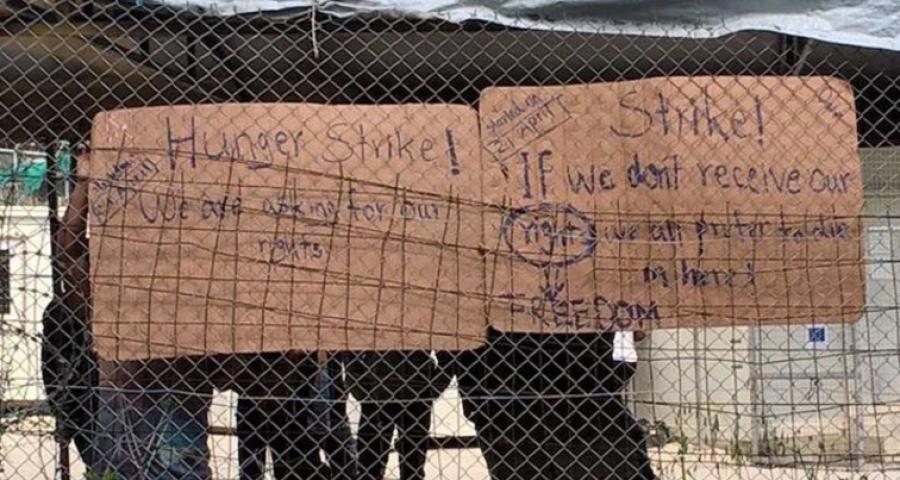 Hunger Strike!
We are asking for our
rights
Started on
21 April
Strike!
If we dont receive our
rights we all prefer to die
in here!
FREEDOM